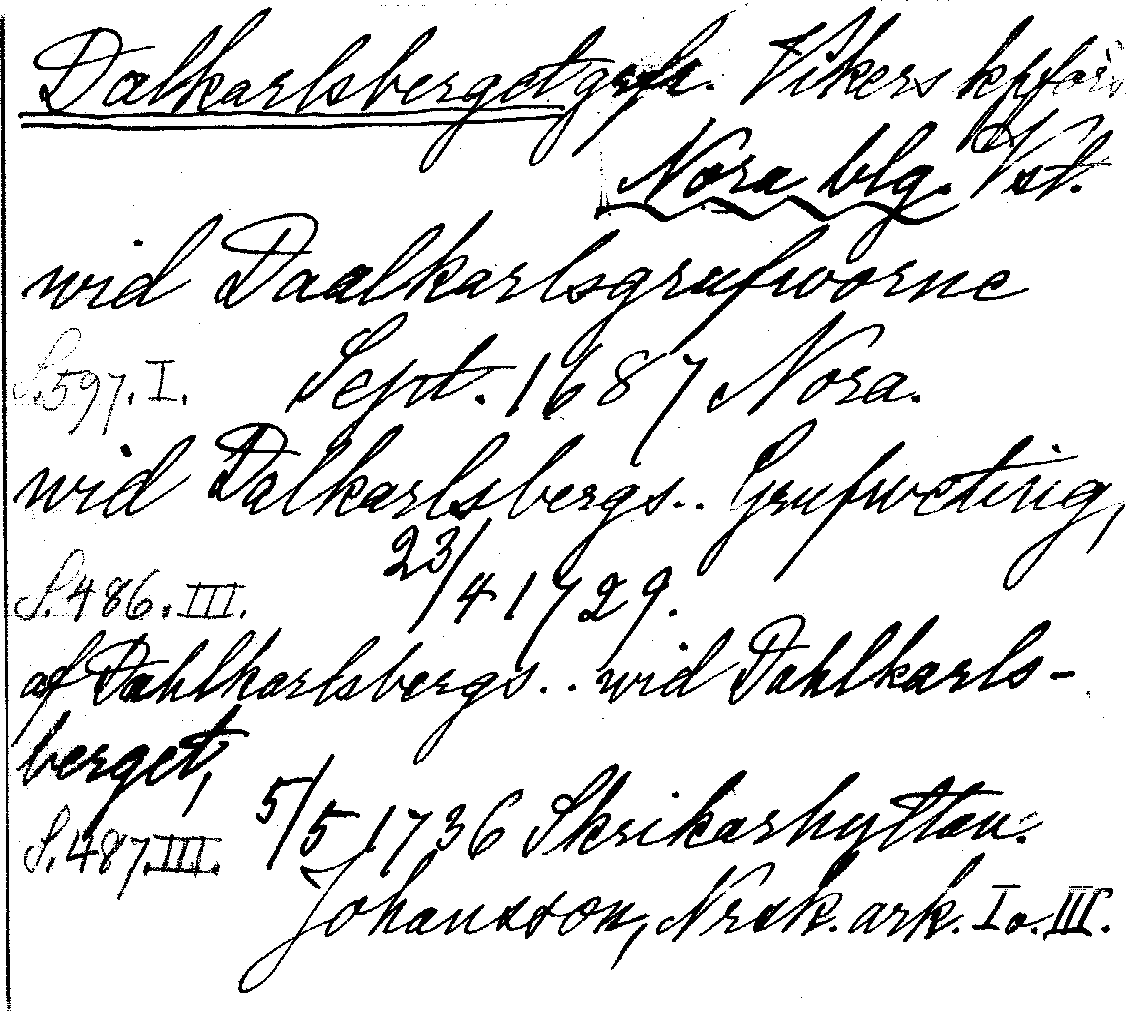 Dalkarlsberget, Vikers kpförs
Nora blg. Vst.
wid Daalkarlsgrufworne
S.597.I. Sept. 1687 Nora.
wid Dalkarlsbergs.. Grufweting,
23/4 1729.
S.486.III.
af Dahlkarlsbergs.. wid Dahlkarls-
berget,
5/5 1736 Skrikarhyttan.
S.487.III.
Johansson, Nrsk. ark. I o. III.